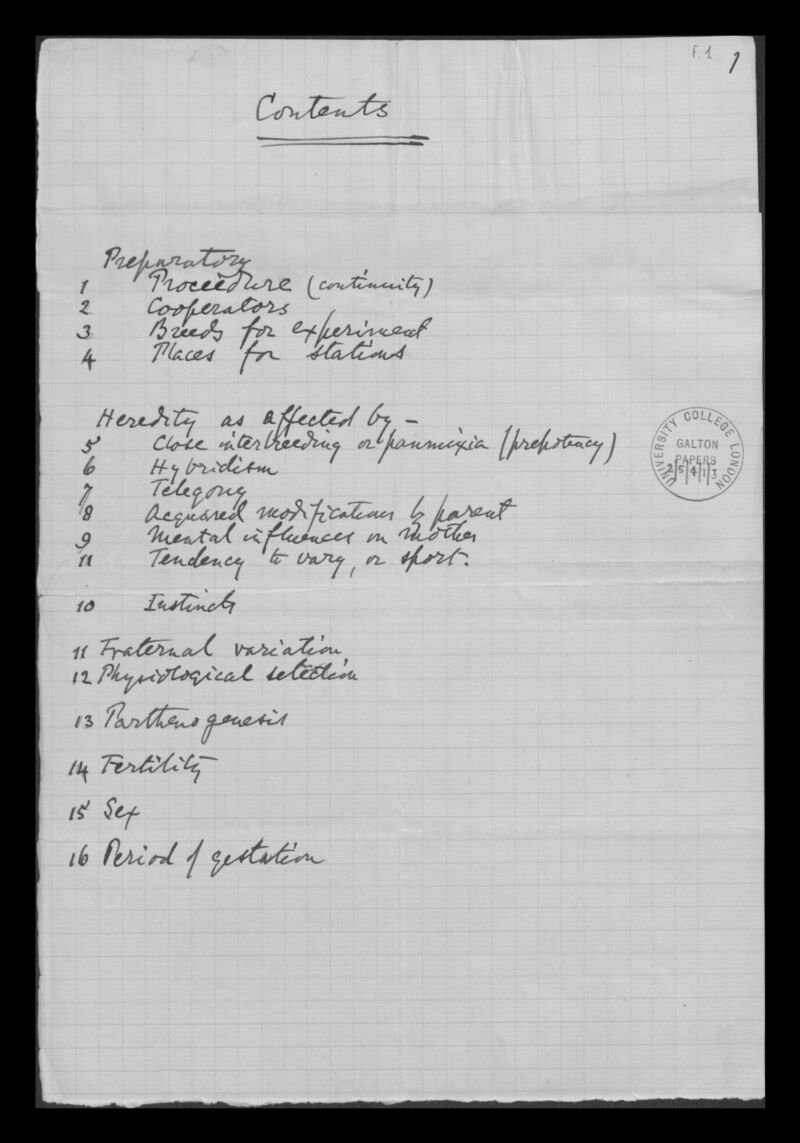 f.1 1
Contents
Preparatory
1 Proceedure (continuity)
2 Cooperators
3 Breeds for experiment
4 Places for stations
Heredity as affected by –
5 Close interbreeding or panmixia (prepotency)
6 Hybridism
7 Telegony
8 Acquared modifications by parent
9 Mental influences on mother
11 Tendency to vary, or sport.
10 Instincts
11 Fraternal variation
12 Physiological selection
13 Parthenogenesis
14 Fertility
15 Sex
16 Period of gestation
UNIVERSITY COLLEGE LONDON
GALTON
PAPERS
2/5/4/1/3